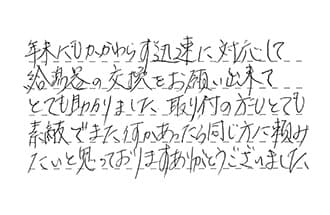 年末にもかかわらず迅速に対応して
給湯器の交換をお願い出来て
とても助かりました、取り付の方もとても
素敵でまた何かあったら同じ方に頼み
たいと思っておりますありがとうございました、